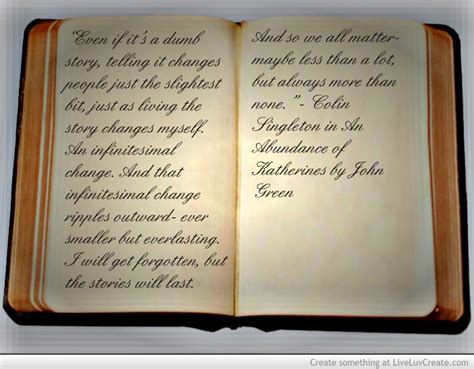 “Even if it's a dumb
story, telling it changes
people just the slightest
bit, just as living the
story changes myself.
An infinitesimal
change. And that
infinitesimal change
ripples outward- ever
smaller but everlasting.
I will get forgotten, but
the stories will last.
And so we all matter-
maybe less than a lot,
but always more than
none.”- Colin
Singleton in An
Abundance of
Katherines by John
Green
Create something at LiveLuvCreate.com